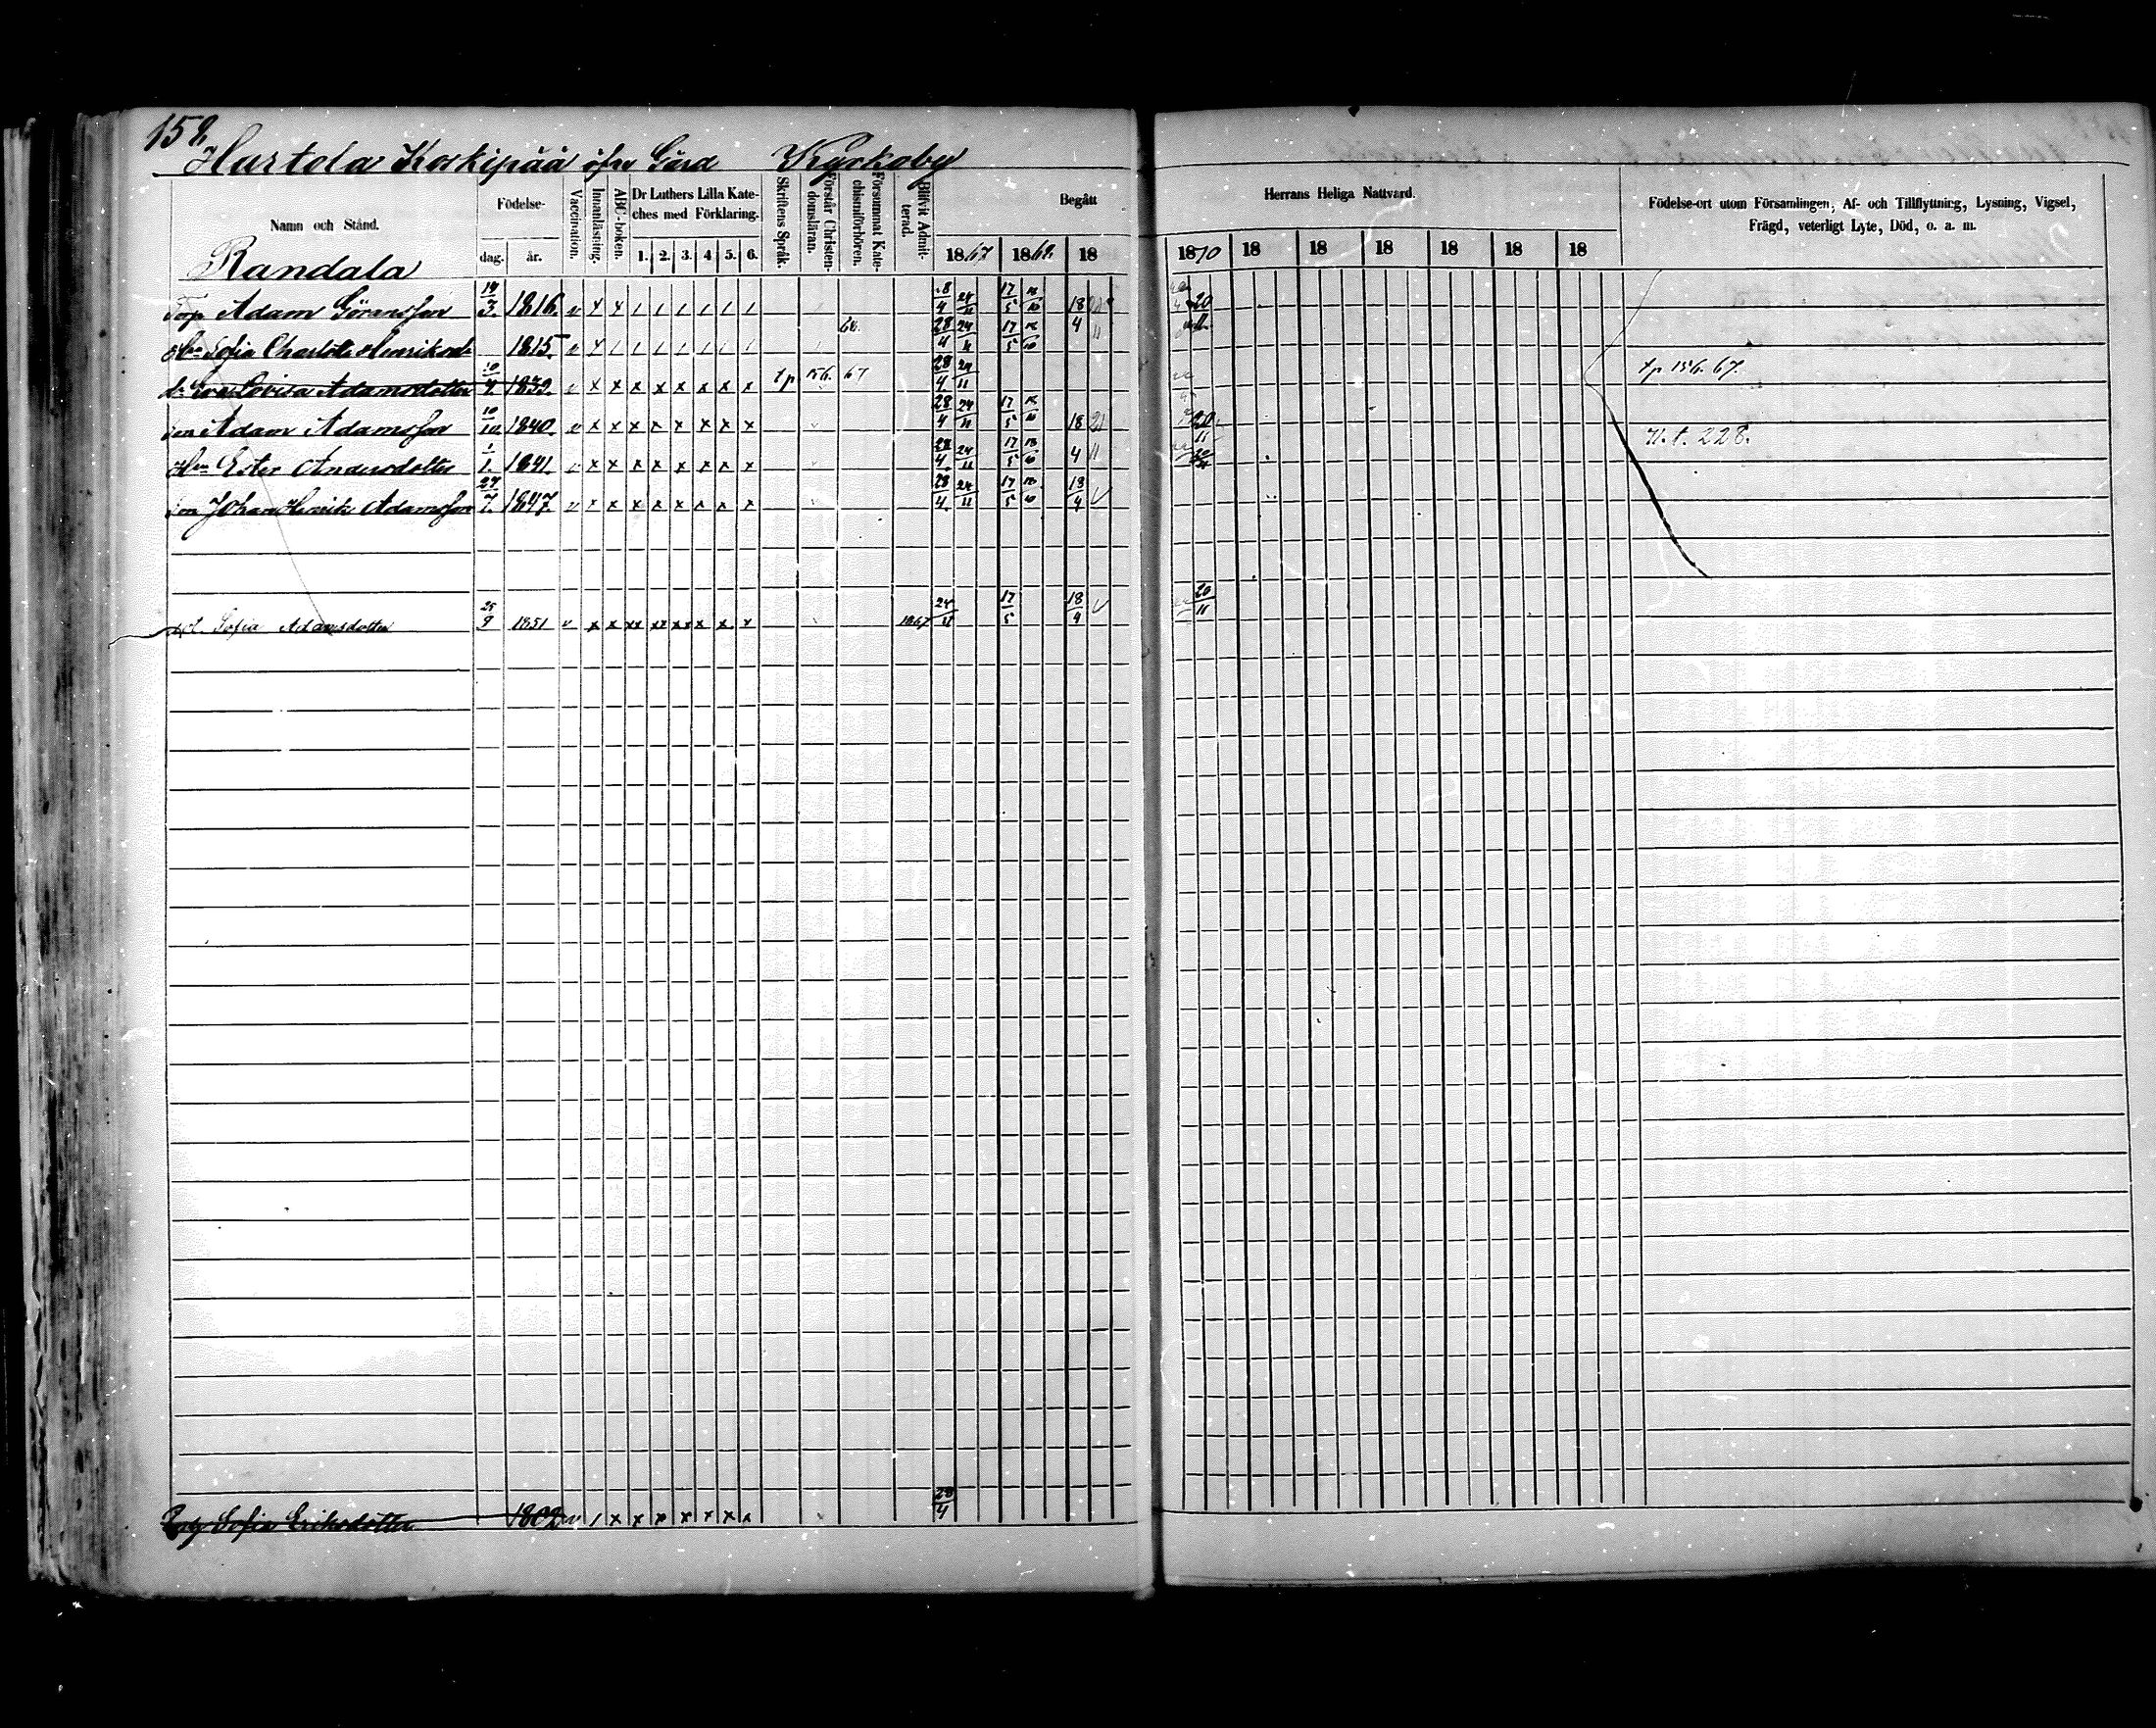 158.
Hartola Koskipää öfre Gård Kyrkoby
Namn och Stånd.
Födelse-
dag. år.
Vaccination.
Innanläsning.
ABC-boken.
Dr Luthers Lilla Kate-
ches med Förklaring.
1. 2. 3. 4. 5. 6.
Skriftens Språk.
Förstår Christen-
domsläran.
Försummat Kate-
chismiförhören.
Blifvit Admit-
terad.
Begått
1867 1868 18
Herrans Heliga Nattvard.
1870 18 18 18 18 18 18
Födelse-ort utom Församlingen, Af- och Tillflyttning, Lysning, Vigsel,
Frägd, veterligt Lyte, Död, o. a. m.
Randala
Torp Adam Göransson 1816. v x x / / / / / / 24/11 17/5 18 20
Hu Sofia Charlotta Henriksdr 1815. v x / / / / / / / 68. 28/4 24/11 17/5 4
dr Eva Lovisa Adamsdotter 1839. v x x x x x x x x tp 156. 67 28/4 24/11 tp 156. 67.
son Adam Adamsson 10/10 1840. v x x x x x x x x 28/4 24/11 17/5 18 20
Hu Ester Andersdotter 1/1. 1841. v x x x x x x x x 28/4 24/11 17/5 4 N. t. 228.
son Johan Henrik Adamsson 27/7. 1847. v x x x x x x x x 28/4 24/11 17/5 18/4
Sofia Adamsdotter 25/9 1851 v x x xx xx xx x x x 1867 24/11 17/5 18/4 20/11
Sofia Eriksdotter 1802 v / x x x x x x x 28/4